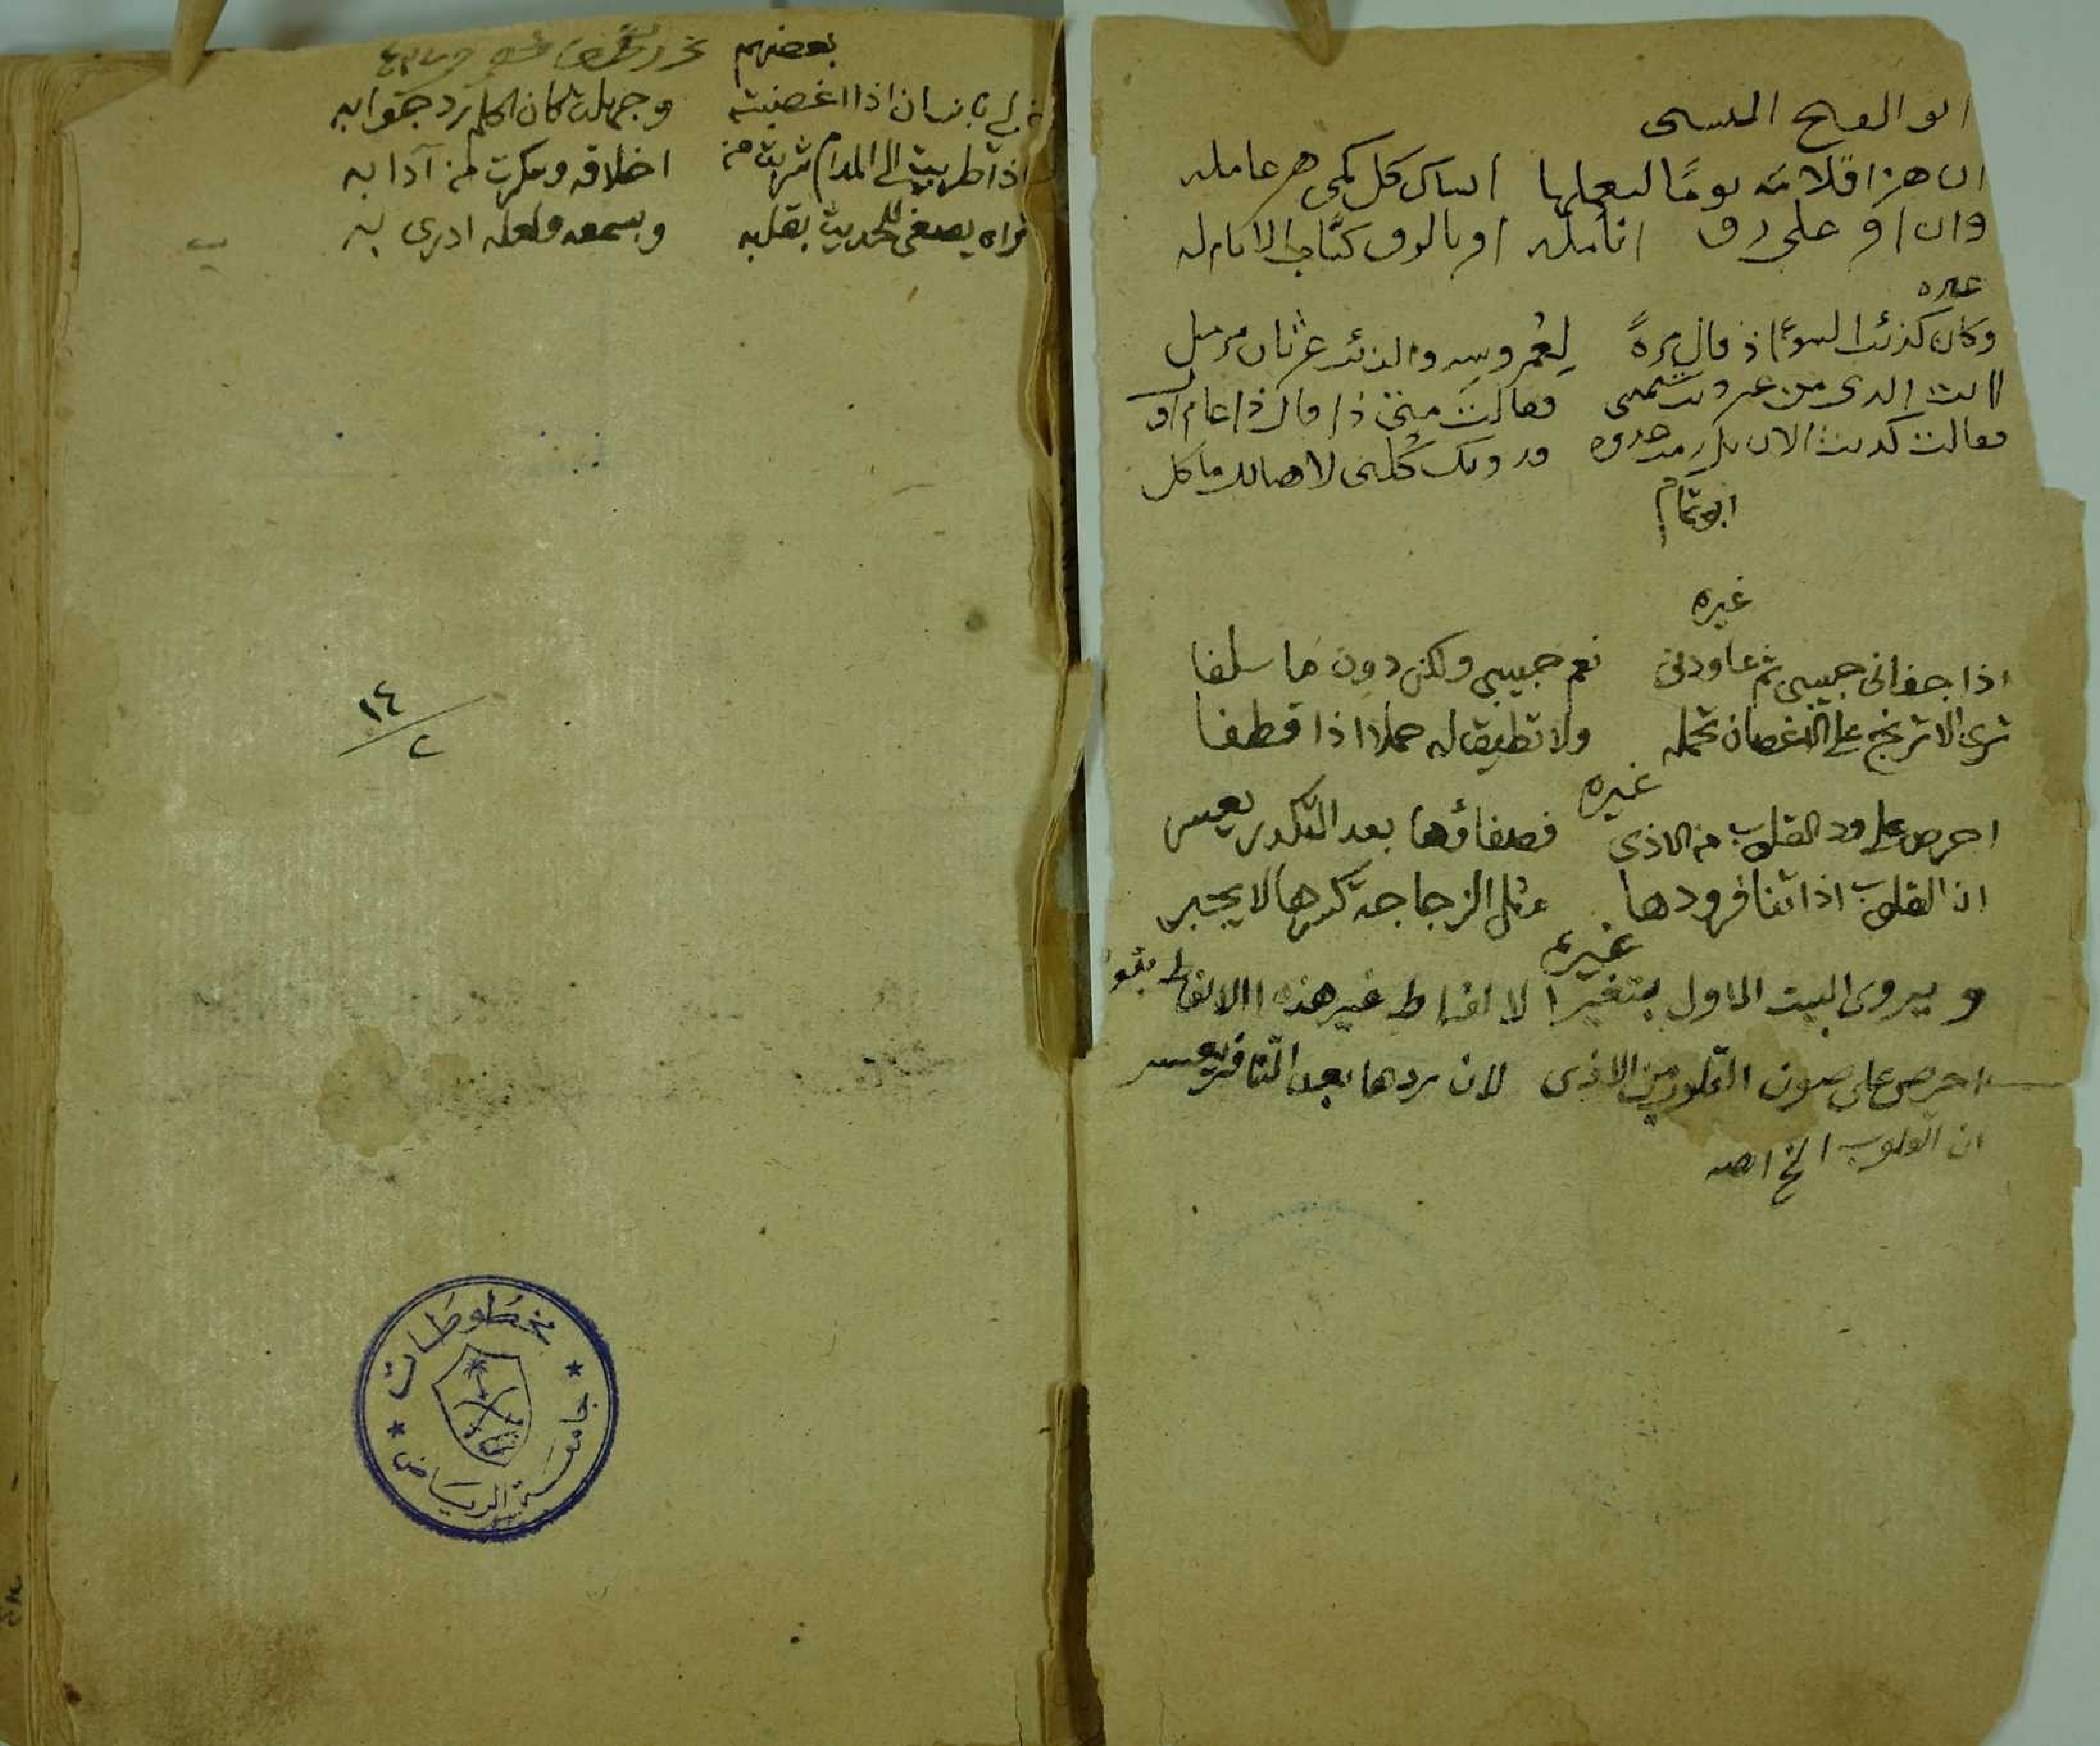 ابو الفتح البستي
ان هز اقلامه يوما ليعملها انساك كل كمي هز عامله
وان اقر على رق انامله اقر بالرق كتاب الانام له
غيره
وكان كذئب السوء اذ قال مرة لعمروسه والذئب غرثان مرمل
اانت الذي من غير شتمتني فقالت متى ذا قال ذا عام اول
فقالت ولدت الان فدونك كلني لا هنا لك ماكل
ابو تمام
غيره
اذا جفاني حبيبي ثم عاودني نعم حبيبي ولكن دون ما سلفا
ترى الاترنج على الاغصان تحمله ولا تطيق له حملا اذا قطفا
غيره
احرص على ود القلوب من الاذى فصفاؤها بعد التكدر يعسر
ان القلوب اذا تنافر ودها مثل الزجاجة كسرها لا يجبر
غيره
ويروى البيت الاول بتغير الالفاظ غير هذه الالفاظ
احرص على صون القلوب من الاذى لان ردها بعد التنافر يعسر
ان القلوب الخ اهـ
بعضهم
لي بانسان اذا اغضبته وجهلت كان الحلم رد جوابه
اذا طربت الى المدام شربت من اخلاقه وسكرت من آدابه
تراه يصغي للحديث بقلبه وبسمعه ولعله ادرى به
١٤
٢
مخطوطات
جامعة الرياض